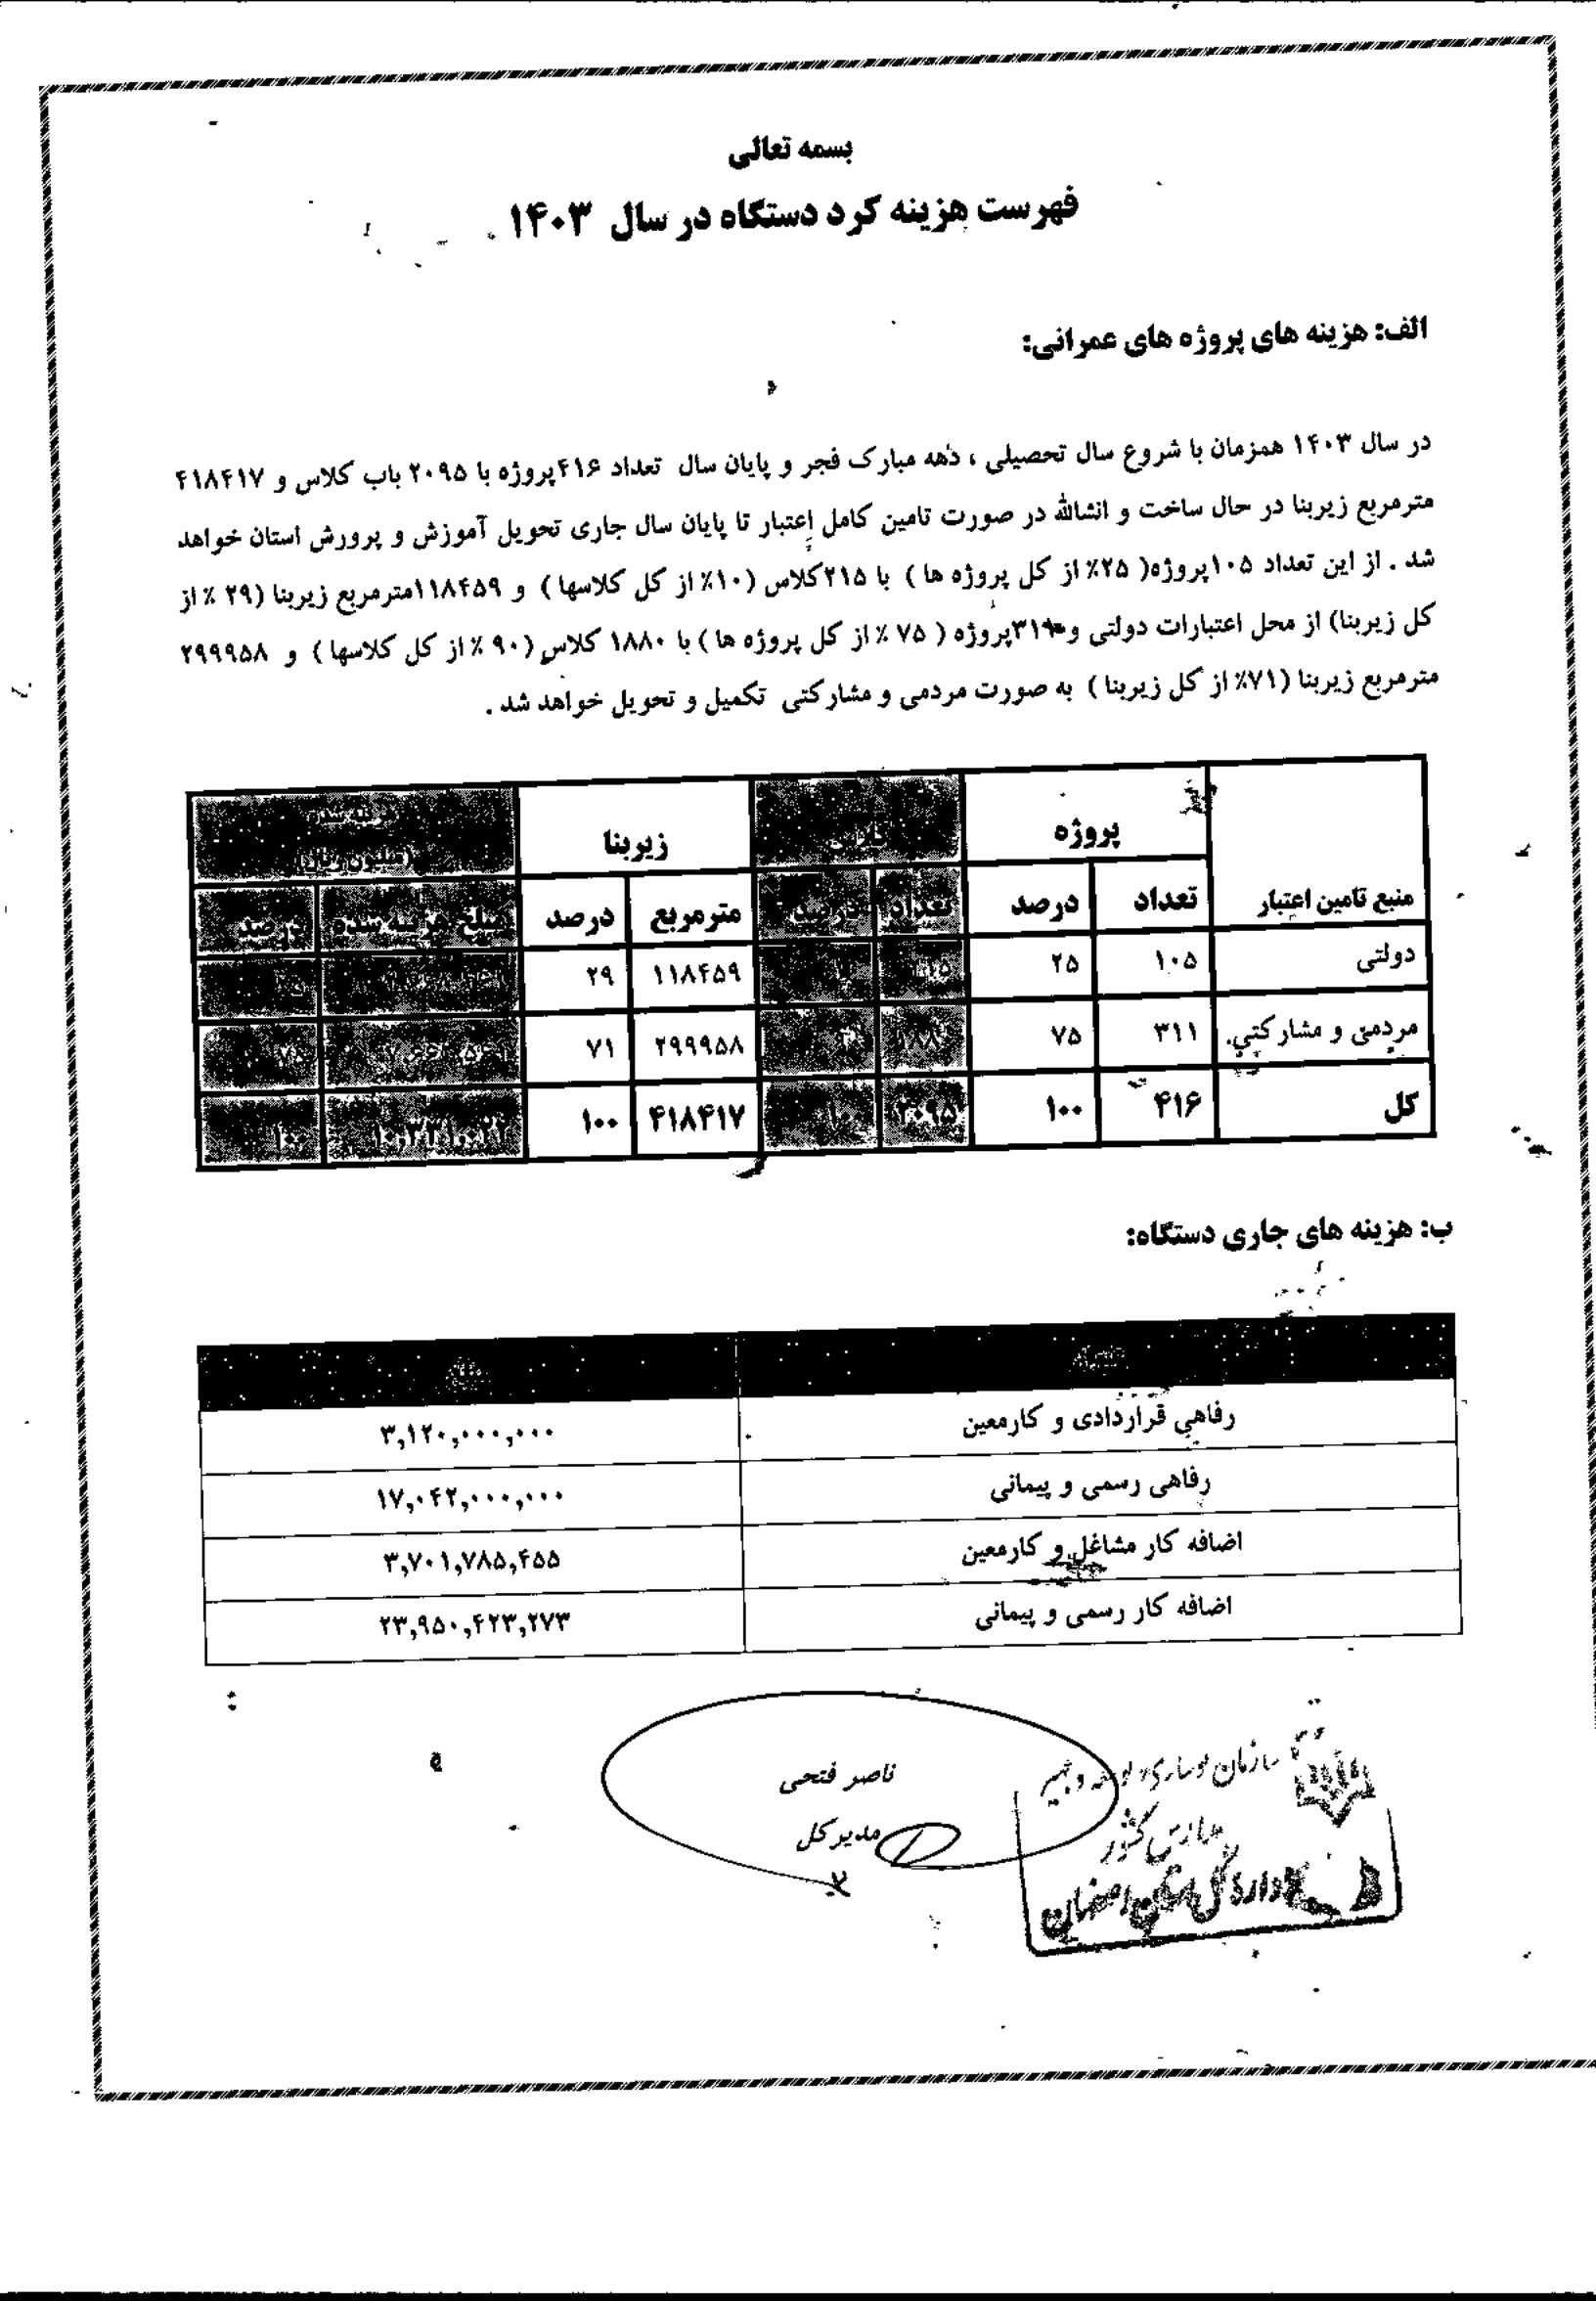 بسمه تعالی
فهرست هزینه کرد دستگاه در سال ۱۴۰۳
الف: هزینه های پروژه های عمرانی:
در سال ۱۴۰۳ همزمان با شروع سال تحصیلی ، دهه مبارک فجر و پایان سال تعداد ۴۱۶پروژه با ۲۰۹۵ باب کلاس و ۴۱۸۴۱۷
مترمربع زیربنا در حال ساخت و انشالله در صورت تامین کامل اعتبار تا پایان سال جاری تحویل آموزش و پرورش استان خواهد
شد . از این تعداد ۱۰۵پروژه( ۲۵٪ از کل پروژه ها ) با ۲۱۵کلاس (۱۰٪ از کل کلاسها ) و ۱۱۸۴۵۹مترمربع زیربنا (۲۹ ٪ از
کل زیربنا) از محل اعتبارات دولتی و ۳۱۱پروژه ( ۷۵ ٪ از کل پروژه ها ) با ۱۸۸۰ کلاس (۹۰ ٪ از کل کلاسها ) و ۲۹۹۹۵۸
مترمربع زیربنا (۷۱٪ از کل زیربنا ) به صورت مردمی و مشارکتی تکمیل و تحویل خواهد شد .
پروژه زیربنا
منبع تامین اعتبار تعداد درصد تعداد درصد مترمربع درصد مبلغ هزینه شده درصد
دولتی ۱۰۵ ۲۵ ۱۱۸۴۵۹ ۲۹
مردمی و مشارکتی ۳۱۱ ۷۵ ۲۹۹۹۵۸ ۷۱ ۷۵
کل ۴۱۶ ۱۰۰ ۲۰۹۵ ۴۱۸۴۱۷ ۱۰۰ ۱۰۰
ب: هزینه های جاری دستگاه:
رفاهی قراردادی و کارمعین ۳,۱۲۰,۰۰۰,۰۰۰
رفاهی رسمی و پیمانی ۱۷,۰۴۲,۰۰۰,۰۰۰
اضافه کار مشاغل و کارمعین ۳,۷۰۱,۷۸۵,۴۵۵
اضافه کار رسمی و پیمانی ۲۳,۹۵۰,۴۲۳,۲۷۳
ناصر فتحی
مدیرکل
سازمان نوسازی، توسعه و تجهیز
مدارس کشور
اداره کل استان اصفهان